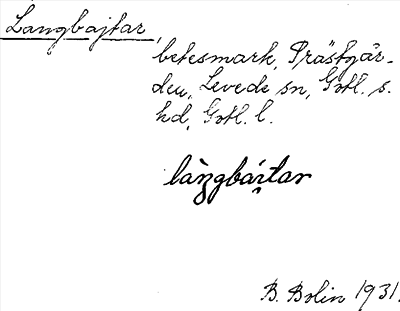 Langbajtar,
betesmark, Prästgår-
den, Levede sn, Gotl. s.
hd, Gotl. l.
B. Bolin 1931.